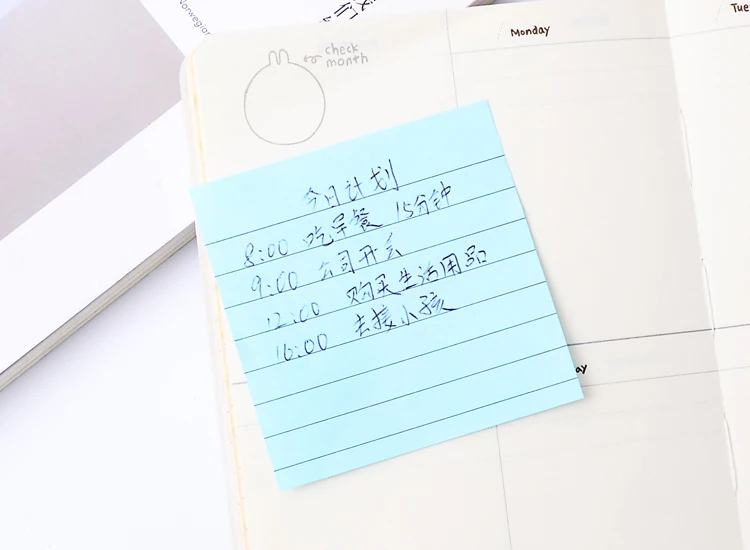 Norwegian
们
check
month
Monday
Tue
今日计划
8:00 吃早餐 15分钟
9:00 公司开会
12:00 购买生活用品
16:00 去接小孩
ay